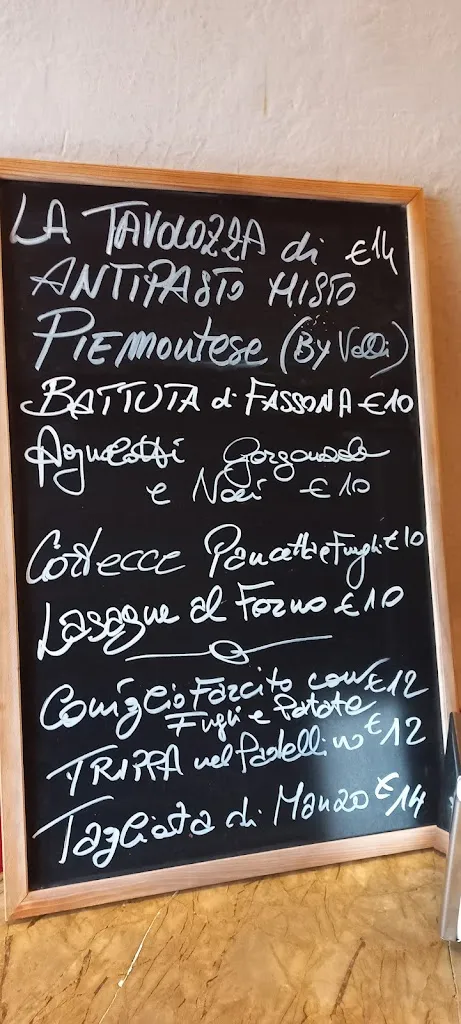 LA TAVOLOZZA di €14
ANTIPASTO MISTO
PIEMONTESE (BY Valli)
BATTUTA di FASSONA €10
Agnolotti Gorgonzola
e Noci €10
Cortecce Pancetta e Funghi €10
Lasagne al Forno €10
Coniglio Farcito con €12
Fughi e Patate
TRIPPA nel Padellino €12
Tagliata di Manzo €14